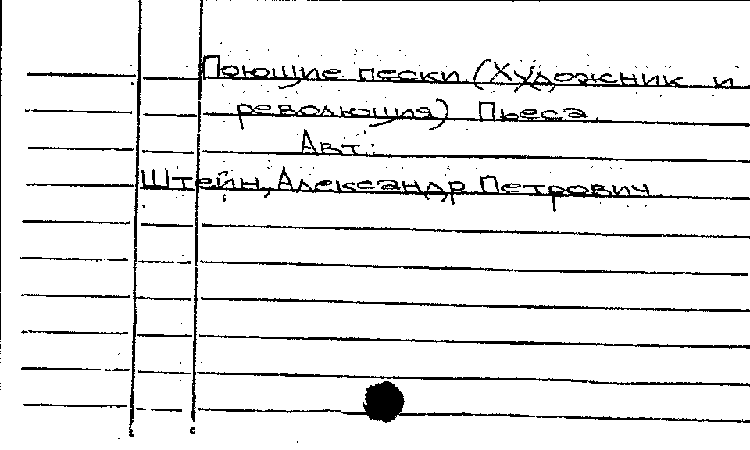 Поющие пески (Художник и
революция) Пьеса.
Авт.:
Штейн, Александр Петрович